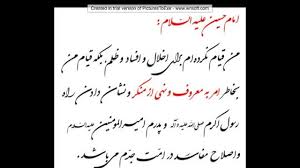 Created in trial version of PicturesToExe - www.wnsoft.com
امام حسین علیه السلام :
من قیام نکرده‌ام برای اخلال و افساد و ظلم بلکه قیام من
بخاطر امر به معروف و نهی از منکر و نشان دادن راه
رسول اکرم صلی الله علیه و آله و پدرم امیرالمؤمنین علیه السلام
و اصلاح مفاسد در امت جدم می باشد.